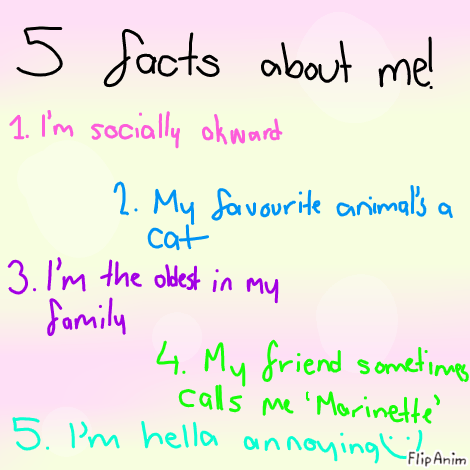 5 facts about me!
1. I'm socially akward
2. My favourite animal's a
cat
3. I'm the oldest in my
family
4. My friend sometimes
calls me 'Marinette'
5. I'm hella annoying :)
FlipAnim